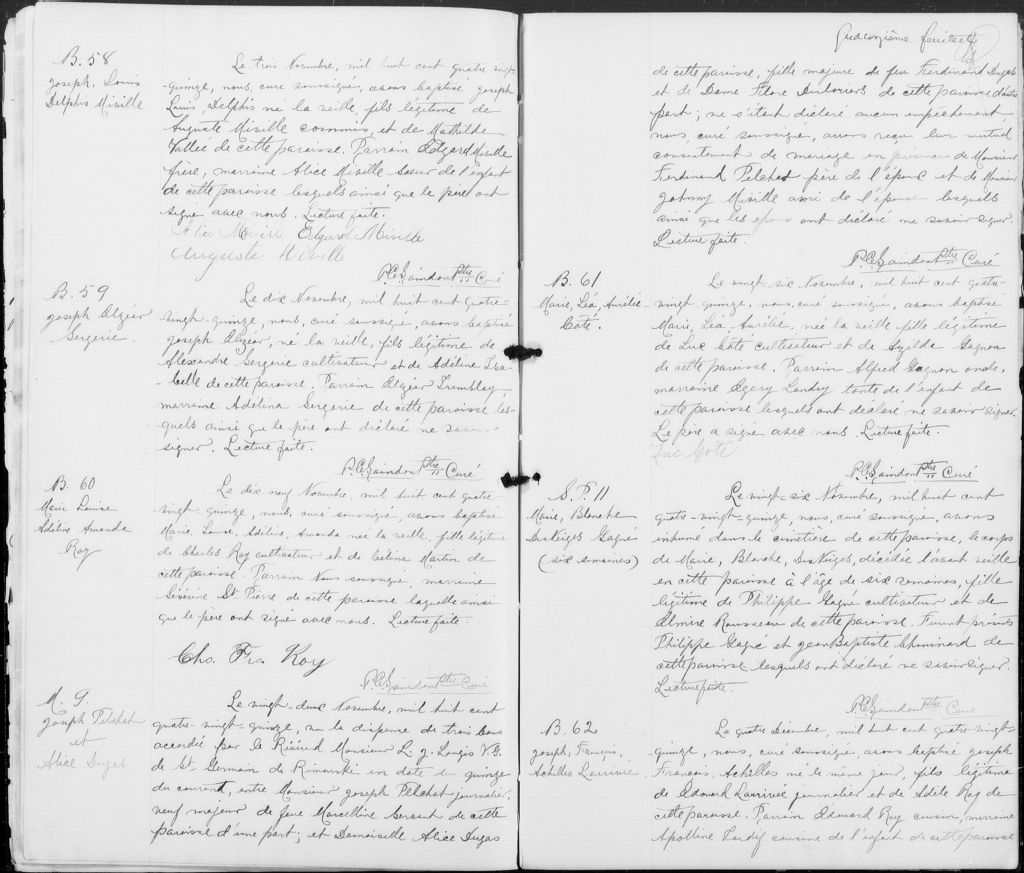 B. 58
Joseph, Louis
Delphis Miville
Le trois Novembre, mil huit cent quatre vingt-
quinze, nous, curé soussigné, avons baptisé Joseph
Louis Delphis né la veille, fils légitime de
Auguste Miville commis, et de Mathilde
Vallée de cette paroisse. Parrain Edgard Miville
frère, marraine Alice Miville soeur de l'enfant
de cette paroisse lesquels ainsi que le père ont
signé avec nous. Lecture faite.
Alice Miville Edgard Miville
Auguste Miville
P. C. Saindon Ptre Curé
B. 59
Joseph Elzéar
Sergerie.
Le dix Novembre, mil huit cent quatre-
vingt-quinze, nous, curé soussigné, avons baptisé
Joseph Elzéar, né la veille, fils légitime de
Alexandre Sergerie cultivateur et de Adeline Isa-
belle de cette paroisse. Parrain Elzéar Tremblay,
marraine Adelina Sergerie de cette paroisse les-
quels ainsi que le père ont déclaré ne savoir
signer. Lecture faite.
P. C. Saindon Ptre Curé
B. 60
Marie Louise
Adeline Amanda
Roy
Le dix neuf Novembre, mil huit cent quatre
vingt-quinze, nous, curé soussigné, avons baptisé
Marie, Louise, Adeline, Amanda née la veille, fille légitime
de Charles Roy cultivateur et de Martin de
cette paroisse. Parrain Nous soussigné, marraine
Séverine St Pierre de cette paroisse laquelle ainsi
que le père ont signé avec nous. Lecture faite.
Chs. Frs. Roy
P. C. Saindon Ptre Curé
M. 9.
Joseph Pelchat
et
Alice Dugas
Le vingt-deux Novembre, mil huit cent
quatre-vingt-quinze, vu la dispense de trois bans
accordée par le Révérend Monsieur L. J. Langis V. G.
de St Germain de Rimouski en date du quinze
du courant, entre Monsieur Joseph Pelchat journalier,
veuf majeur de feue Marcelline de cette
paroisse d'une part; et Demoiselle Alice Dugas
Quatorzième feuillet
de cette paroisse, fille majeure de feu Ferdinand Dugas
et de Dame Flore de cette paroisse d'autre
part; ne s'étant déclaré aucun empêchement
nous, curé soussigné, avons reçu leur mutuel
consentement de mariage en présence de Monsieur
Ferdinand Pelchat père de l'époux et de Monsieur
Johnny Miville ami de l'épouse lesquels
ainsi que les époux ont déclaré ne savoir signer.
Lecture faite.
P. C. Saindon Ptre Curé
B. 61
Marie, Léa, Aurélie
Côté.
Le vingt-six Novembre, mil huit cent quatre-
vingt quinze, nous, curé soussigné, avons baptisé
Marie, Léa, Aurélie, née la veille, fille légitime
de Luc Côté cultivateur et de Exilda Gagnon
de cette paroisse. Parrain Alfred Gagnon oncle,
marraine Landry tante de l'enfant de
cette paroisse lesquels ont déclaré ne savoir signer.
Le père a signé avec nous. Lecture faite.
Luc Cote
P. C. Saindon Ptre Curé
S. P. 11
Marie, Blanche
DesNeiges Gagné
(six semaines)
Le vingt-six Novembre, mil huit cent
quatre-vingt-quinze, nous, curé soussigné, avons
inhumé dans le cimetière de cette paroisse, le corps
de Marie, Blanche, DesNeiges, décédée l'avant veille
en cette paroisse à l'âge de six semaines, fille
légitime de Philippe Gagné cultivateur et de
Elmire Rousseau de cette paroisse. Furent présents
Philippe Gagné et Jean Baptiste Chouinard de
cette paroisse lesquels ont déclaré ne savoir signer.
Lecture faite.
P. C. Saindon Ptre Curé
B. 62
Joseph, François,
Achilles Larrivée
Le quatre Décembre, mil huit cent quatre-vingt-
quinze, nous, curé soussigné, avons baptisé Joseph
François, Achilles né le même jour, fils légitime
de Edouard Larrivée journalier et de Adèle Roy de
cette paroisse. Parrain Edouard Roy cousin, marraine
Apolline cousine de l'enfant de cette paroisse